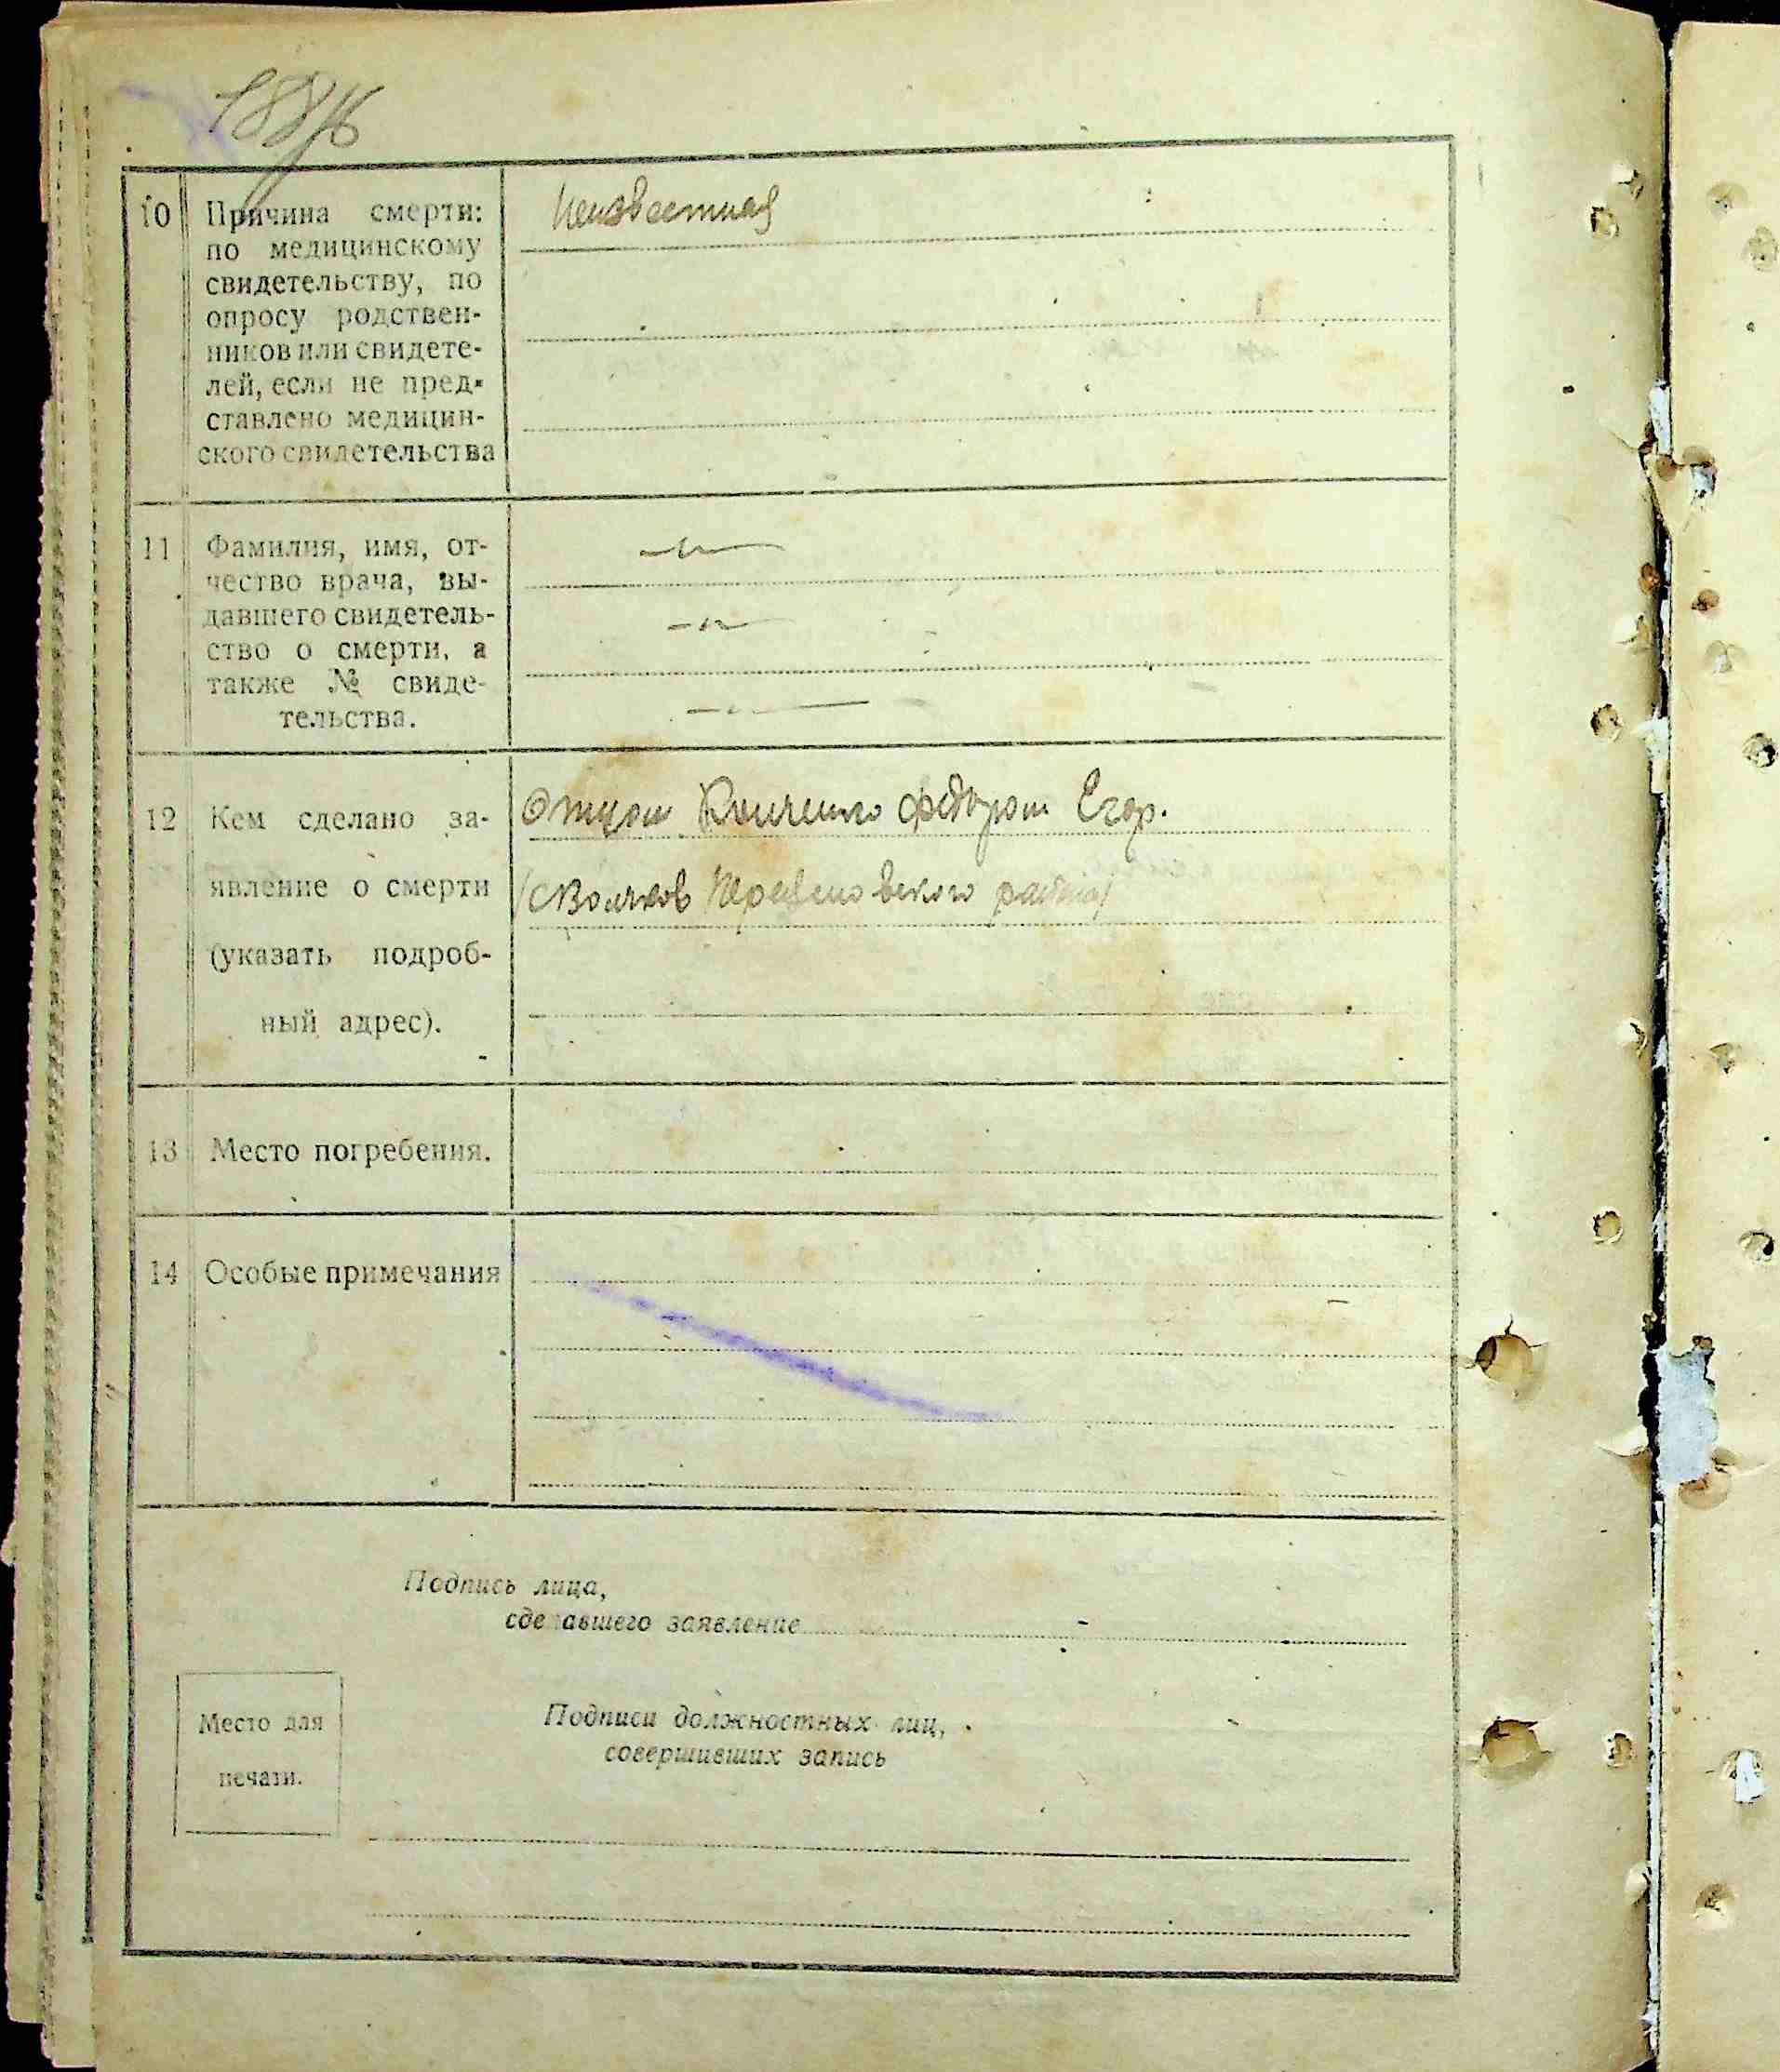 10 Причина смерти: Неизвестная
по медицинскому
свидетельству, по
опросу родствен-
ников или свидете-
лей, если не пред-
ставлено медицин-
ского свидетельства
11 Фамилия, имя, от-
чество врача, вы-
давшего свидетель-
ство о смерти, а
также № свиде-
тельства.
12 Кем сделано за- Отцом Егор.
явление о смерти района)
(указать подроб-
ный адрес).
13 Место погребения.
14 Особые примечания
Подпись лица,
сделавшего заявление
Место для
печати.
Подписи должностных лиц,
совершивших запись